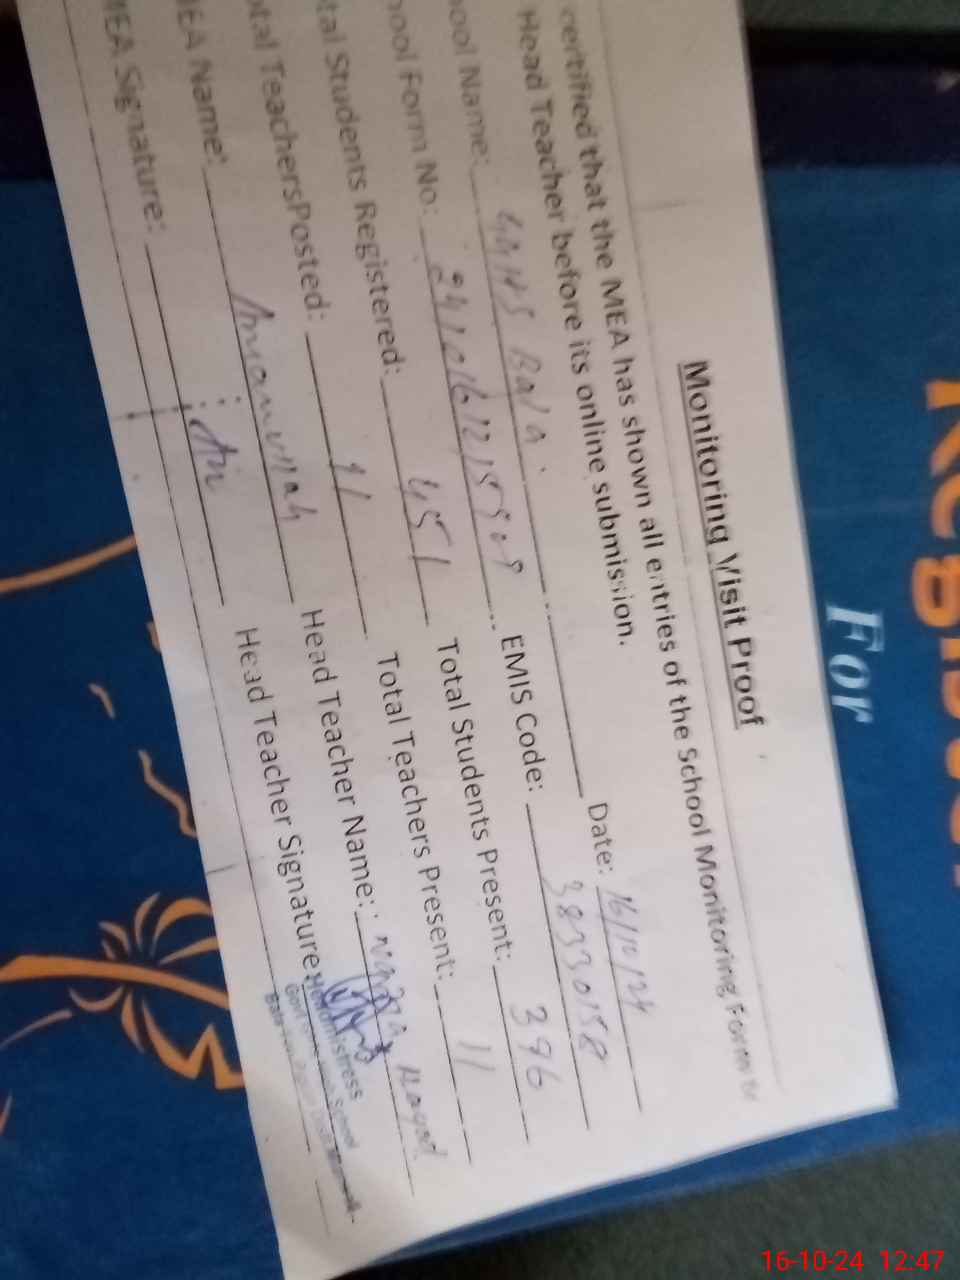 For
Monitoring Visit Proof
certified that the MEA has shown all entries of the School Monitoring Form to
Head Teacher before its online submission.
ool Name: GGHS Bala Date: 16/10/24
hool Form No: EMIS Code: 38330158
tal Students Registered: 451 Total Students Present: 396
tal TeachersPosted: 11 Total Teachers Present: 11
EA Name: Head Teacher Name:
MEA Signature: Head Teacher Signature:
Headmistress
School
16-10-24 12:47